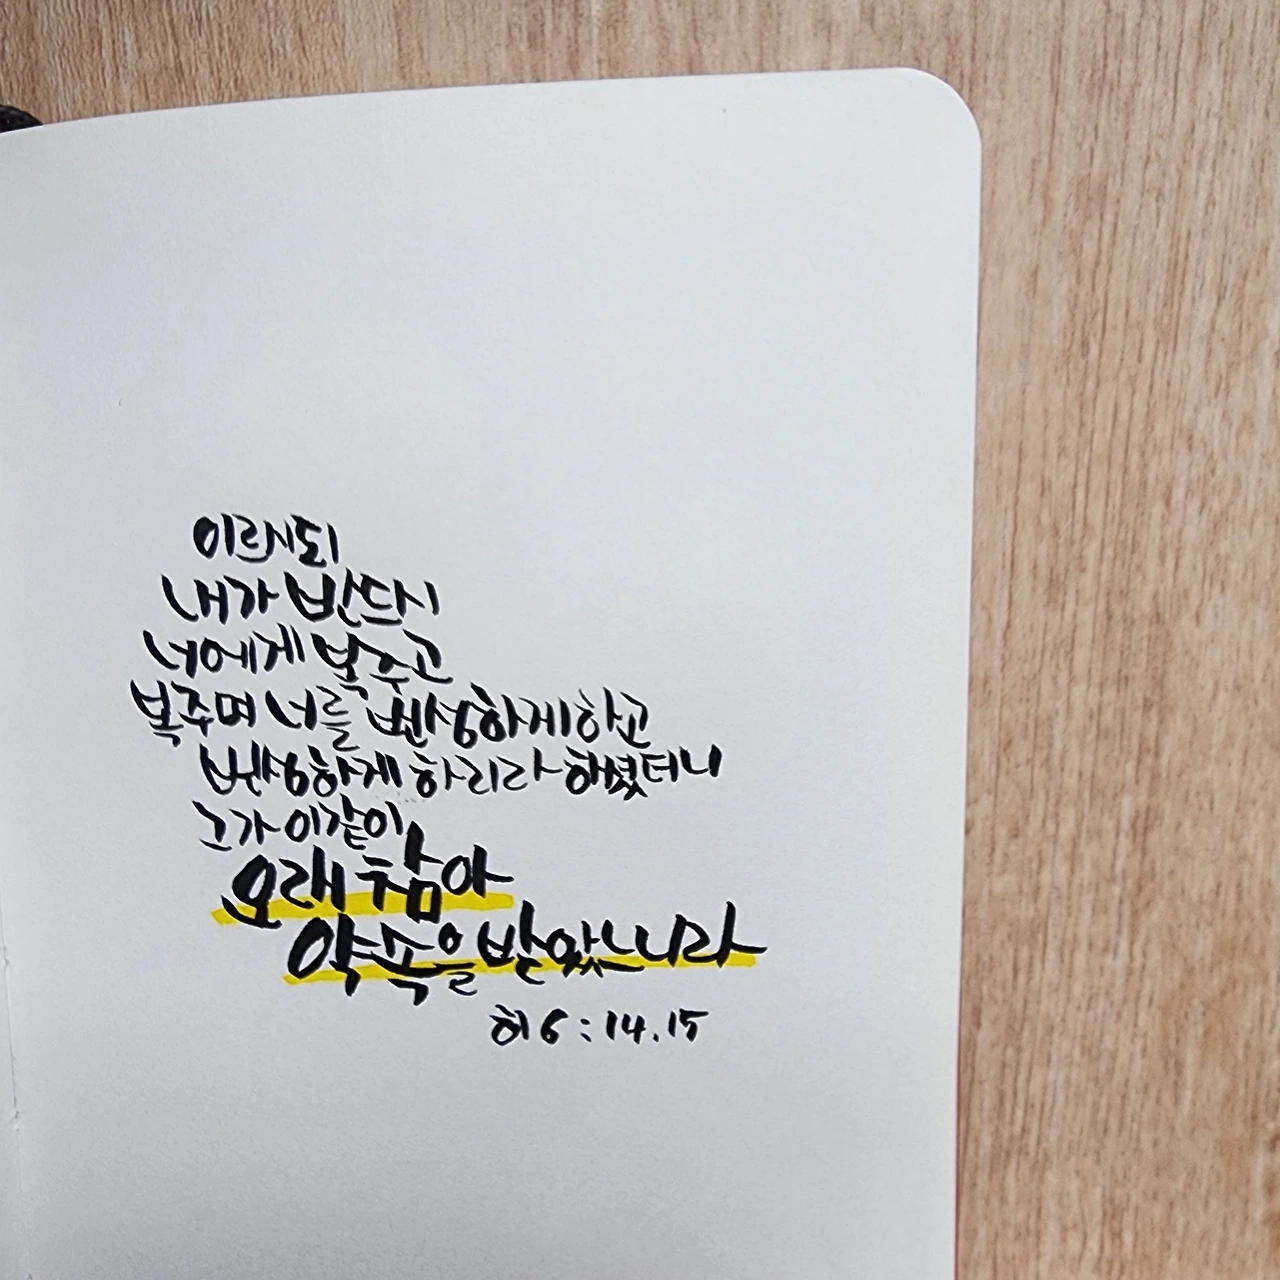 이르시되
내가 반드시
너에게 복주고
복주며 너를 번성하게하고
번성하게 하리라 하셨더니
그가 이같이
오래 참아
약속을 받았느니라
히 6:14.15